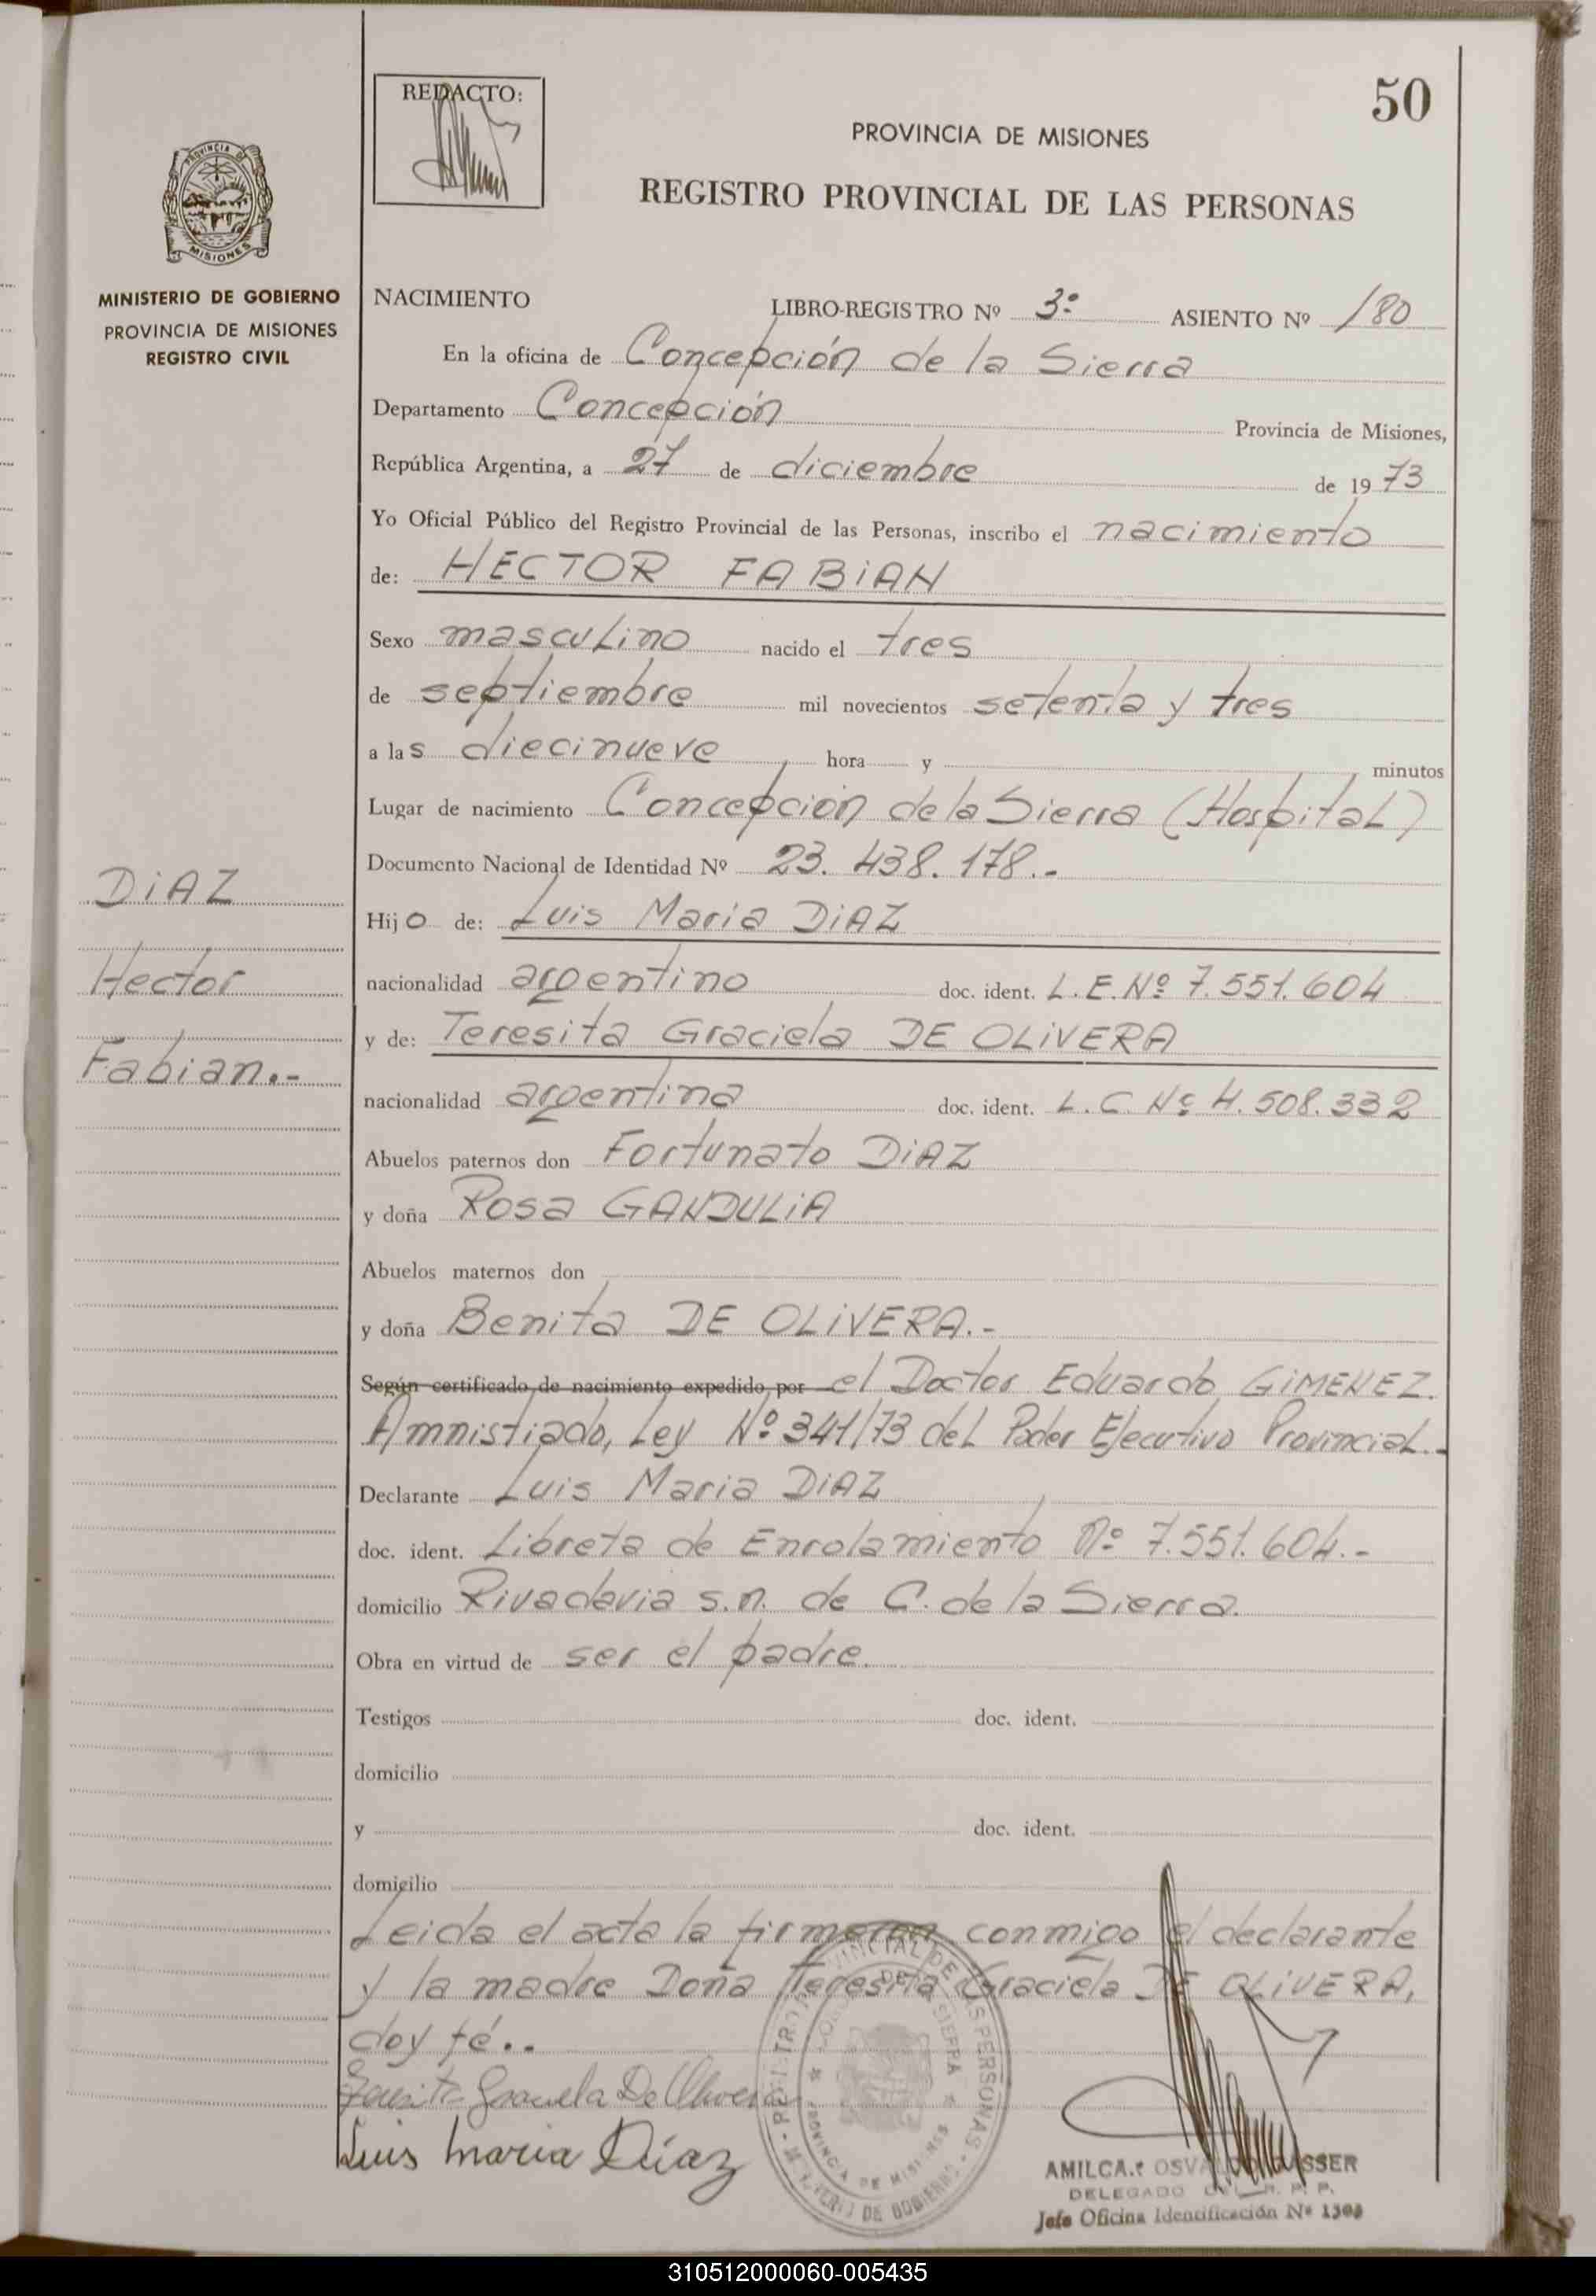 50
REDACTO:
PROVINCIA DE MISIONES
REGISTRO PROVINCIAL DE LAS PERSONAS
PROVINCIA DE
MISIONES
MINISTERIO DE GOBIERNO
PROVINCIA DE MISIONES
REGISTRO CIVIL
NACIMIENTO LIBRO-REGISTRO Nº 3º ASIENTO Nº 180
En la oficina de Concepción de la Sierra
Departamento Concepción Provincia de Misiones,
República Argentina, a 27 de diciembre de 1973
Yo Oficial Público del Registro Provincial de las Personas, inscribo el nacimiento
de: HECTOR FABIAN
Sexo masculino nacido el tres
de septiembre mil novecientos setenta y tres
a las diecinueve hora y minutos
Lugar de nacimiento Concepción de la Sierra (Hospital)
Documento Nacional de Identidad Nº 23.438.178.-
DiAZ
Hector
Fabian.-
Hijo de: Luis Maria DiAZ
nacionalidad argentino doc. ident. L.E.Nº 7.551.604
y de: Teresita Graciela DE OLiVERA
nacionalidad argentina doc. ident. L.C. Nº 4.508.332
Abuelos paternos don Fortunato DiAZ
y doña Rosa GANDULiA
Abuelos maternos don
y doña Benita DE OLiVERA.-
Según certificado de nacimiento expedido por el Doctor Eduardo GiMENEZ.
Amnistiado, Ley Nº 341/73 del Poder Ejecutivo Provincial.-
Declarante Luis Maria DiAZ
doc. ident. Libreta de Enrolamiento Nº 7.551.604.-
domicilio Rivadavia s.n. de C. de la Sierra.
Obra en virtud de ser el padre.
Testigos doc. ident.
domicilio
y doc. ident.
domicilio
Leida el acta la firmaran conmigo el declarante
y la madre Doña Teresita Graciela DE OLiVERA,
doy fé..
Teresita Graciela De Olivera
Luis Maria Díaz
DELEGADO
Jefe Oficina Identificación Nº 1303
310512000060-005435